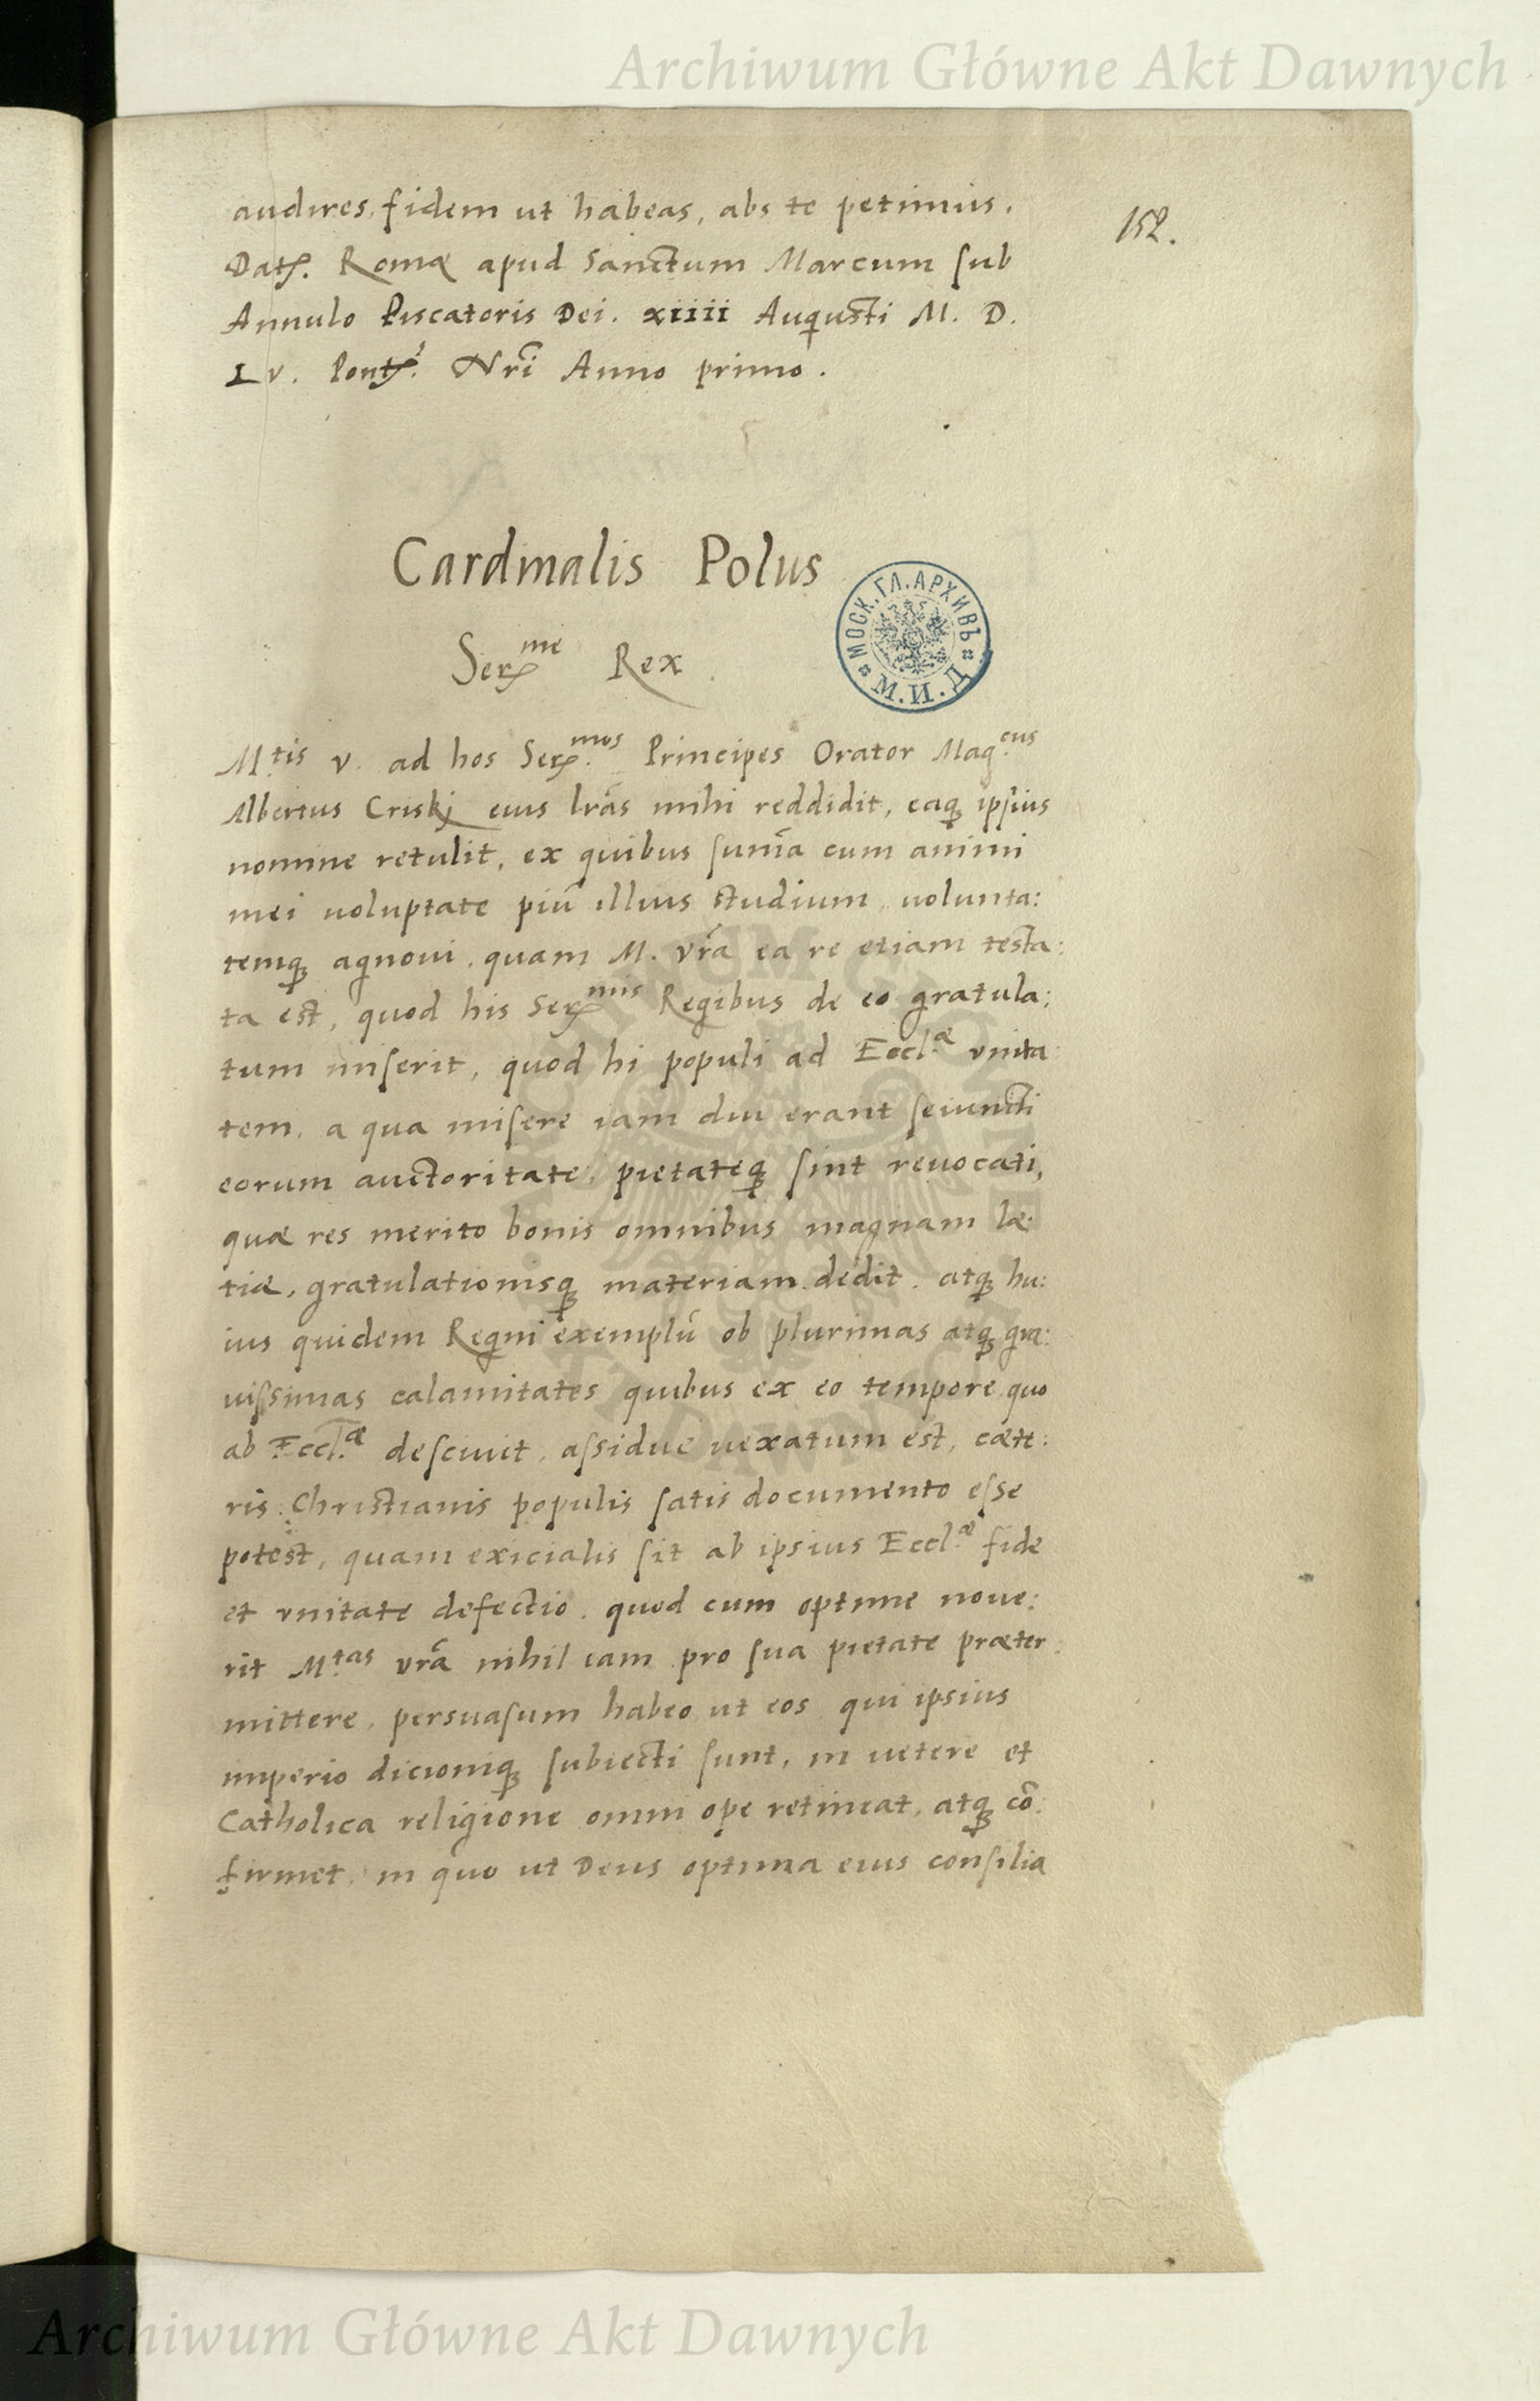 Archiwum Główne Akt Dawnych
audires, fidem ut habeas, abs te petimus.
152.
Dat. Romæ apud Sanctum Marcum sub
Annulo Piscatoris Dei. xiiii Augusti M. D.
Lv. Pont. Nrĩ Anno primo.
Cardinalis Polus
Ser.me Rex
МОСК. ГЛ. АРХИВЪ
М. И. Д.
M.tis v. ad hos Ser.mos Principes Orator Mag.cus
Albertus Criskj eius lrãs mihi reddidit, eaq; ipsius
nomine retulit, ex quibus sum̃a cum animi
mei uoluptate piũ illius studium, uolunta:
temq; agnoui, quam M. vrã ea re etiam testa:
ta est, quod his Ser.mis Regibus de eo gratula:
tum miserit, quod hi populi ad Eccl.æ vnita:
tem, a qua misere iam diu erant seiuncti
eorum auctoritate, pietateq; sint reuocati,
quæ res merito bonis omnibus magnam læ:
tiæ, gratulationisq; materiam dedit. atq; hu:
ius quidem Regni exemplũ ob plurimas atq; gra:
uissimas calamitates quibus ex eo tempore, quo
ab Eccl.æ desciuit, assidue uexatum est, cæte:
ris Christianis populis satis documento esse
potest, quam exicialis sit ab ipsius Eccl.æ fide
et vnitate defectio. quod cum optime noue:
rit M.tas vrã nihil eam pro sua pietate præter:
mittere, persuasum habeo, ut eos qui ipsius
imperio dicioniq; subiecti sunt, in uetere et
Catholica religione omni ope retineat, atq; cõ:
firmet. in quo ut Deus optima eius consilia
Archiwum Główne Akt Dawnych